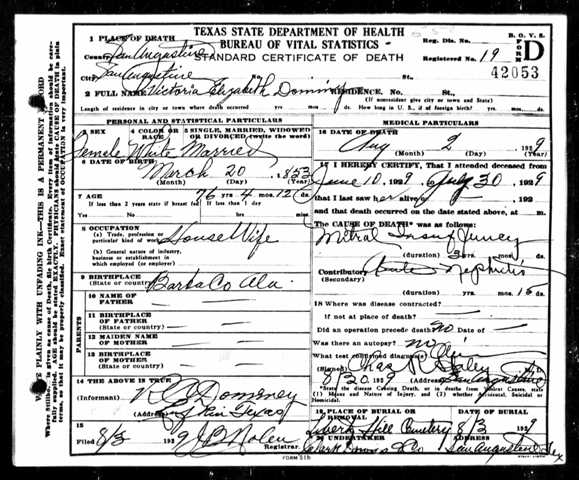 TEXAS STATE DEPARTMENT OF HEALTH
BUREAU OF VITAL STATISTICS
STANDARD CERTIFICATE OF DEATH
B. O. V. S.
FORM D
Reg. Dis. No.
Registered No. 19
42053
1 PLACE OF DEATH
County San Augustine
City San Augustine No. St.
2 FULL NAME Victoria Elizabeth Dominy RESIDENCE. No. St.
(If nonresident give city or town and State)
Length of residence in city or town where death occurred yrs. mos. ds. How long in U. S., if of foreign birth? yrs. mos. ds.
PERSONAL AND STATISTICAL PARTICULARS
3 SEX 4 COLOR OR RACE 5 SINGLE, MARRIED, WIDOWED OR DIVORCED (write the word)
Female White Married
6 DATE OF BIRTH
March 20 1853
(Month) (Day) (Year)
7 AGE
76 yrs. 4 mos. 12 ds.
If less than 2 years state if breast fed If less than 1 day
Yes No hrs. min.
8 OCCUPATION
(a) Trade, profession or particular kind of work House Wife
(b) General nature of industry, business or establishment in which employed (or employer)
9 BIRTHPLACE
(State or country) Barba Co Ala.
PARENTS
10 NAME OF FATHER —
11 BIRTHPLACE OF FATHER
(State or country) —
12 MAIDEN NAME OF MOTHER —
13 BIRTHPLACE OF MOTHER
(State or country) —
14 THE ABOVE IS TRUE
(Informant)
(Address) Texas
15
Filed 8/3 29 J B Nolen
Registrar
MEDICAL PARTICULARS
16 DATE OF DEATH
Aug 2 1929
(Month) (Day) (Year)
17 I HEREBY CERTIFY, That I attended deceased from
June 10, 1929, to July 30 1929
that I last saw her alive on 192
and that death occurred on the date stated above, at m.
The CAUSE OF DEATH* was as follows:
Mitral Insufficiency
(duration) yrs. mos. ds.
Contributory Acute Nephritis
(Secondary)
(duration) yrs. mos. 15 ds.
18 Where was disease contracted?
if not at place of death? —
Did an operation precede death? no Date of —
Was there an autopsy? no
What test confirmed diagnosis?
(Signed) Chas R
8/20 1929 (Address) San Augustine
*State the disease Causing Death, or in deaths from Violent Causes, state (1) Means and Nature of Injury, and (2) whether Accidental, Suicidal or Homicidal.
19 PLACE OF BURIAL OR REMOVAL DATE OF BURIAL
Liberty Hill Cemetery 8/3 1929
20 UNDERTAKER ADDRESS
Clark Downs & Co San Augustine Tex
FORM 51b